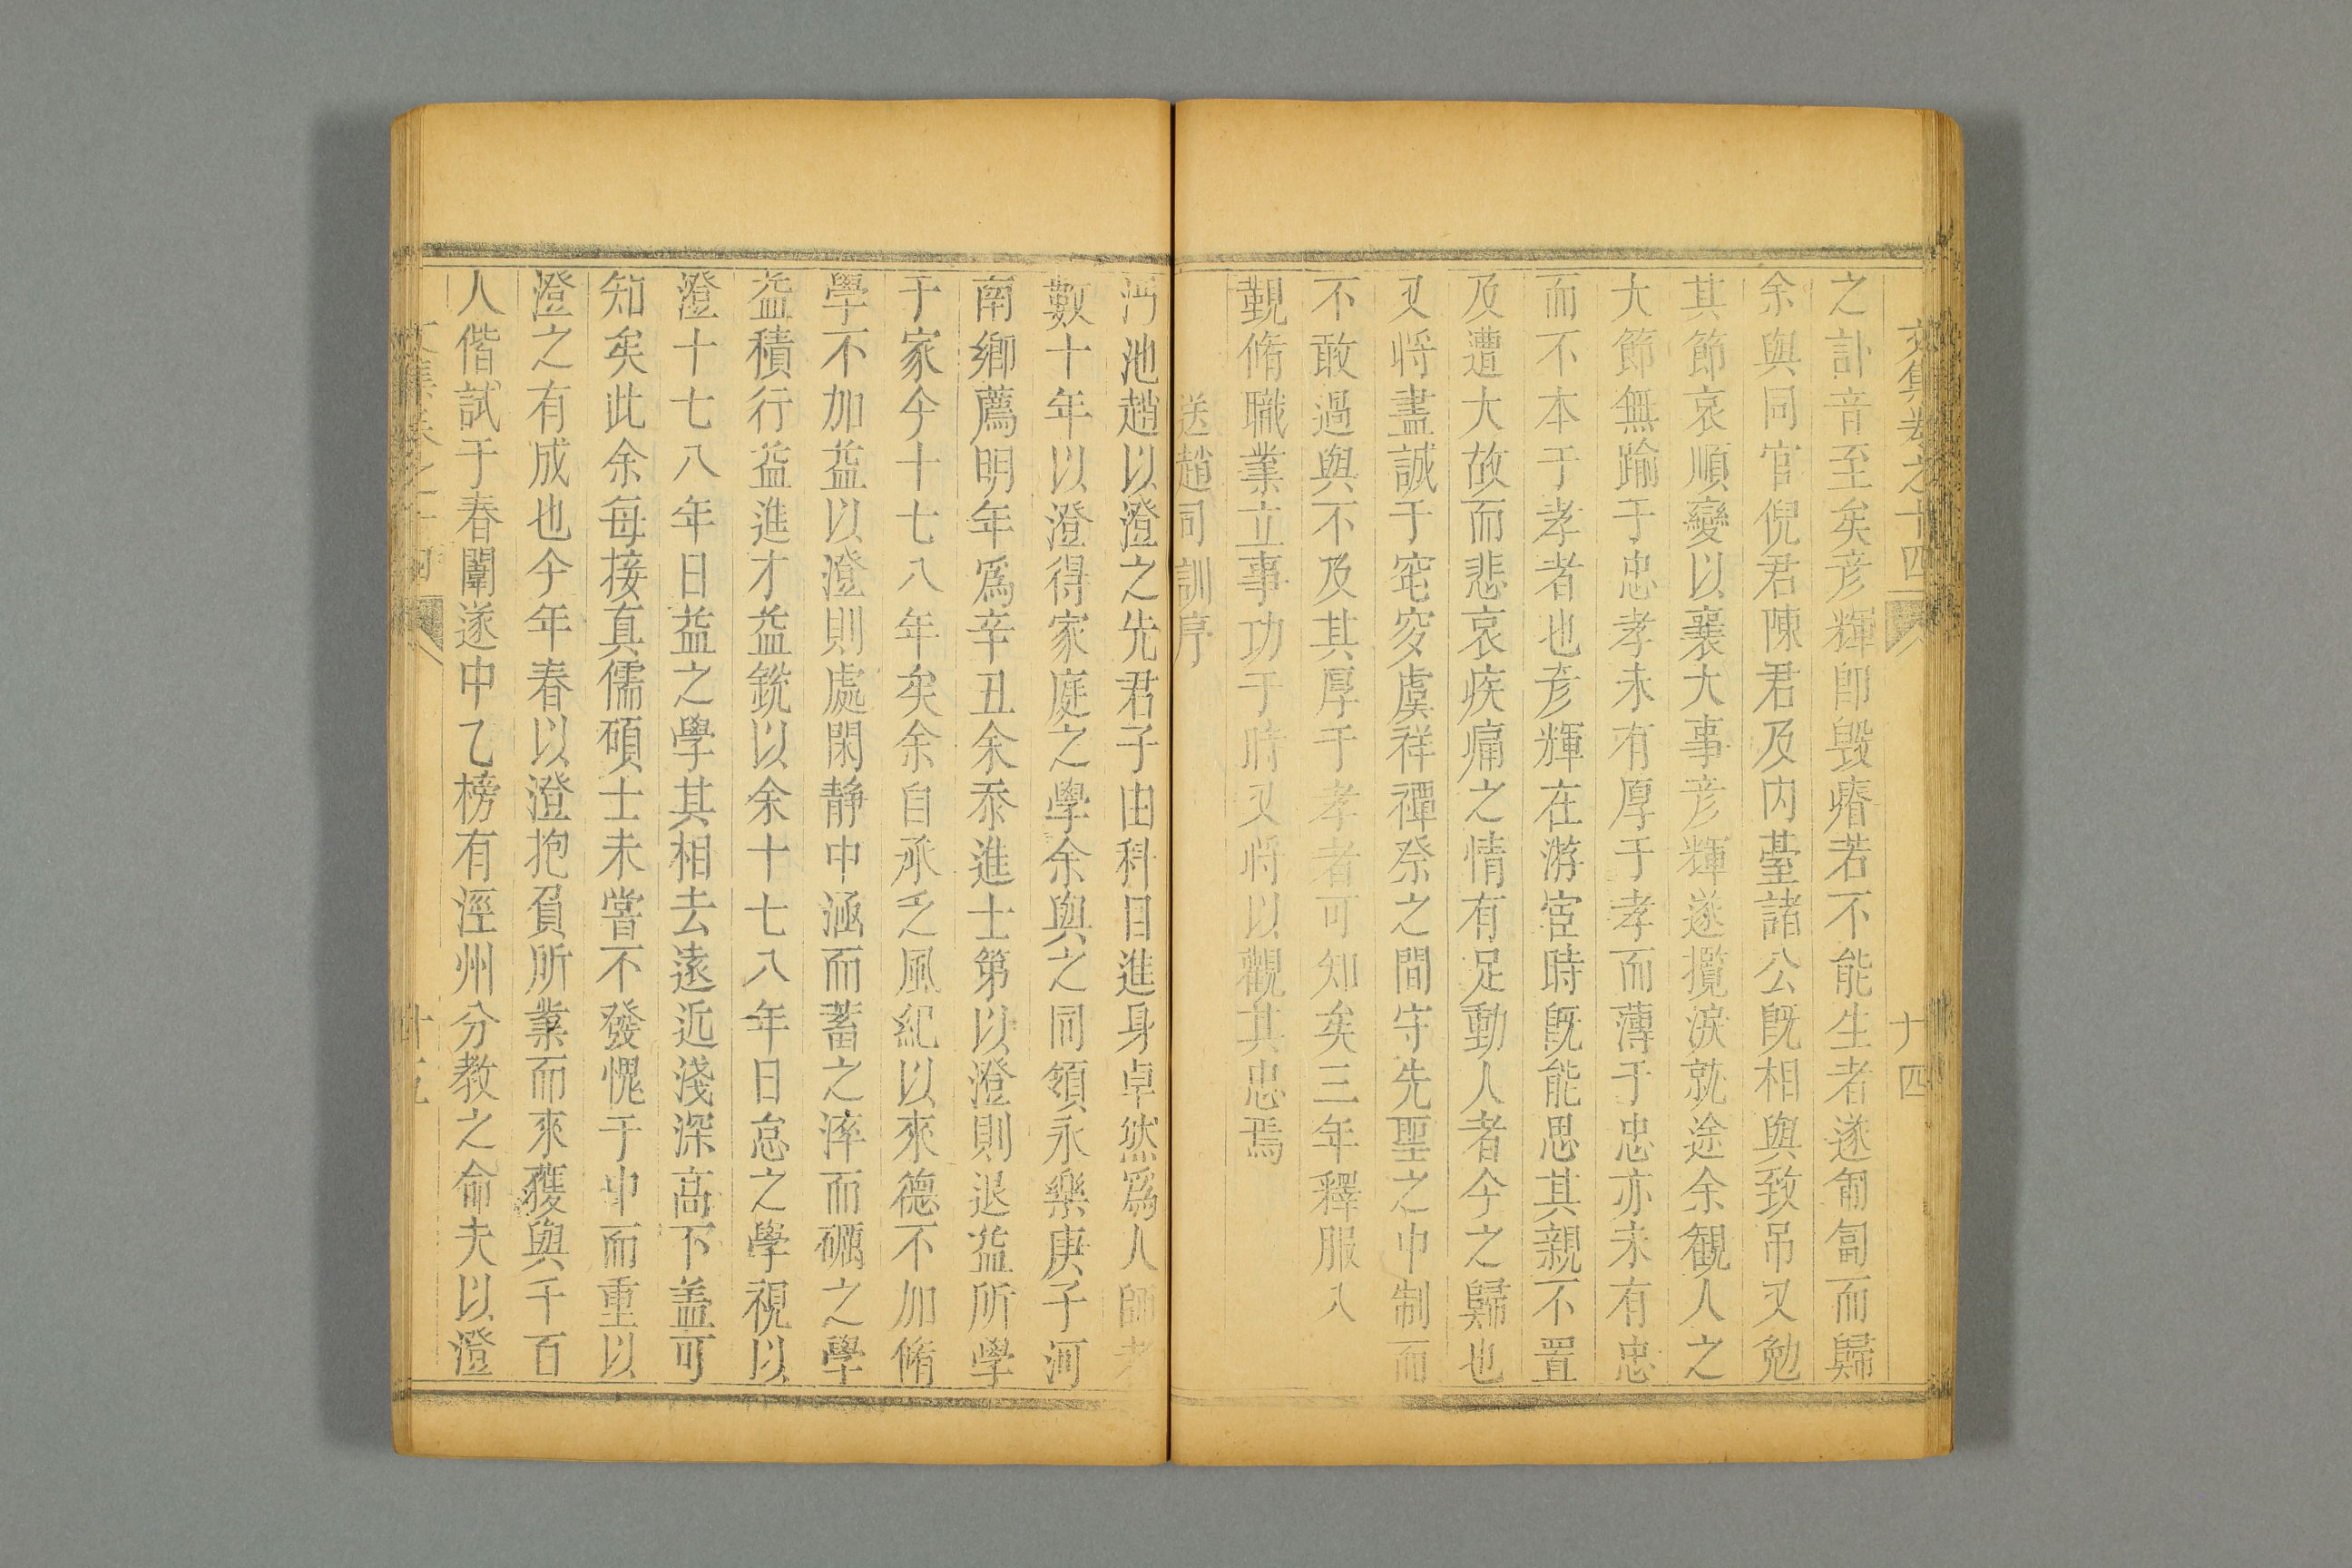 文集卷之十四
十四
之訃音至矣彦輝卽毁瘠若不能生者遂匍匐而歸
余與同官倪君陳君及内臺諸公旣相與致吊又勉
其節哀順變以襄大事彦輝遂攬淚就途余観人之
大節無踰于忠孝未有厚于孝而薄于忠亦未有忠
而不本于孝者也彦輝在游宦時旣能思其親不置
及遭大故而悲哀疾痛之情有足動人者今之歸也
又将盡誠于窀穸虞祥禫祭之間守先聖之中制而
不敢過與不及其厚于孝者可知矣三年釋服入
覲脩職業立事功于時又将以觀其忠焉
送趙司訓序
沔池趙以澄之先君子由科目進身卓然爲人師者
數十年以澄得家庭之學余與之同領永樂庚子河
南鄉薦明年爲辛丑余忝進士第以澄則退益所學
于家今十七八年矣余自承乏風紀以來德不加脩
學不加益以澄則處閑静中涵而蓄之淬而礪之學
益積行益進才益銳以余十七八年日怠之學視以
澄十七八年日益之學其相去遠近淺深高下盖可
知矣此余每接真儒碩士未嘗不發愧于中而重以
澄之有成也今年春以澄抱負所業而來獲與千百
人偕試于春闈遂中乙榜有涇州分教之命夫以澄